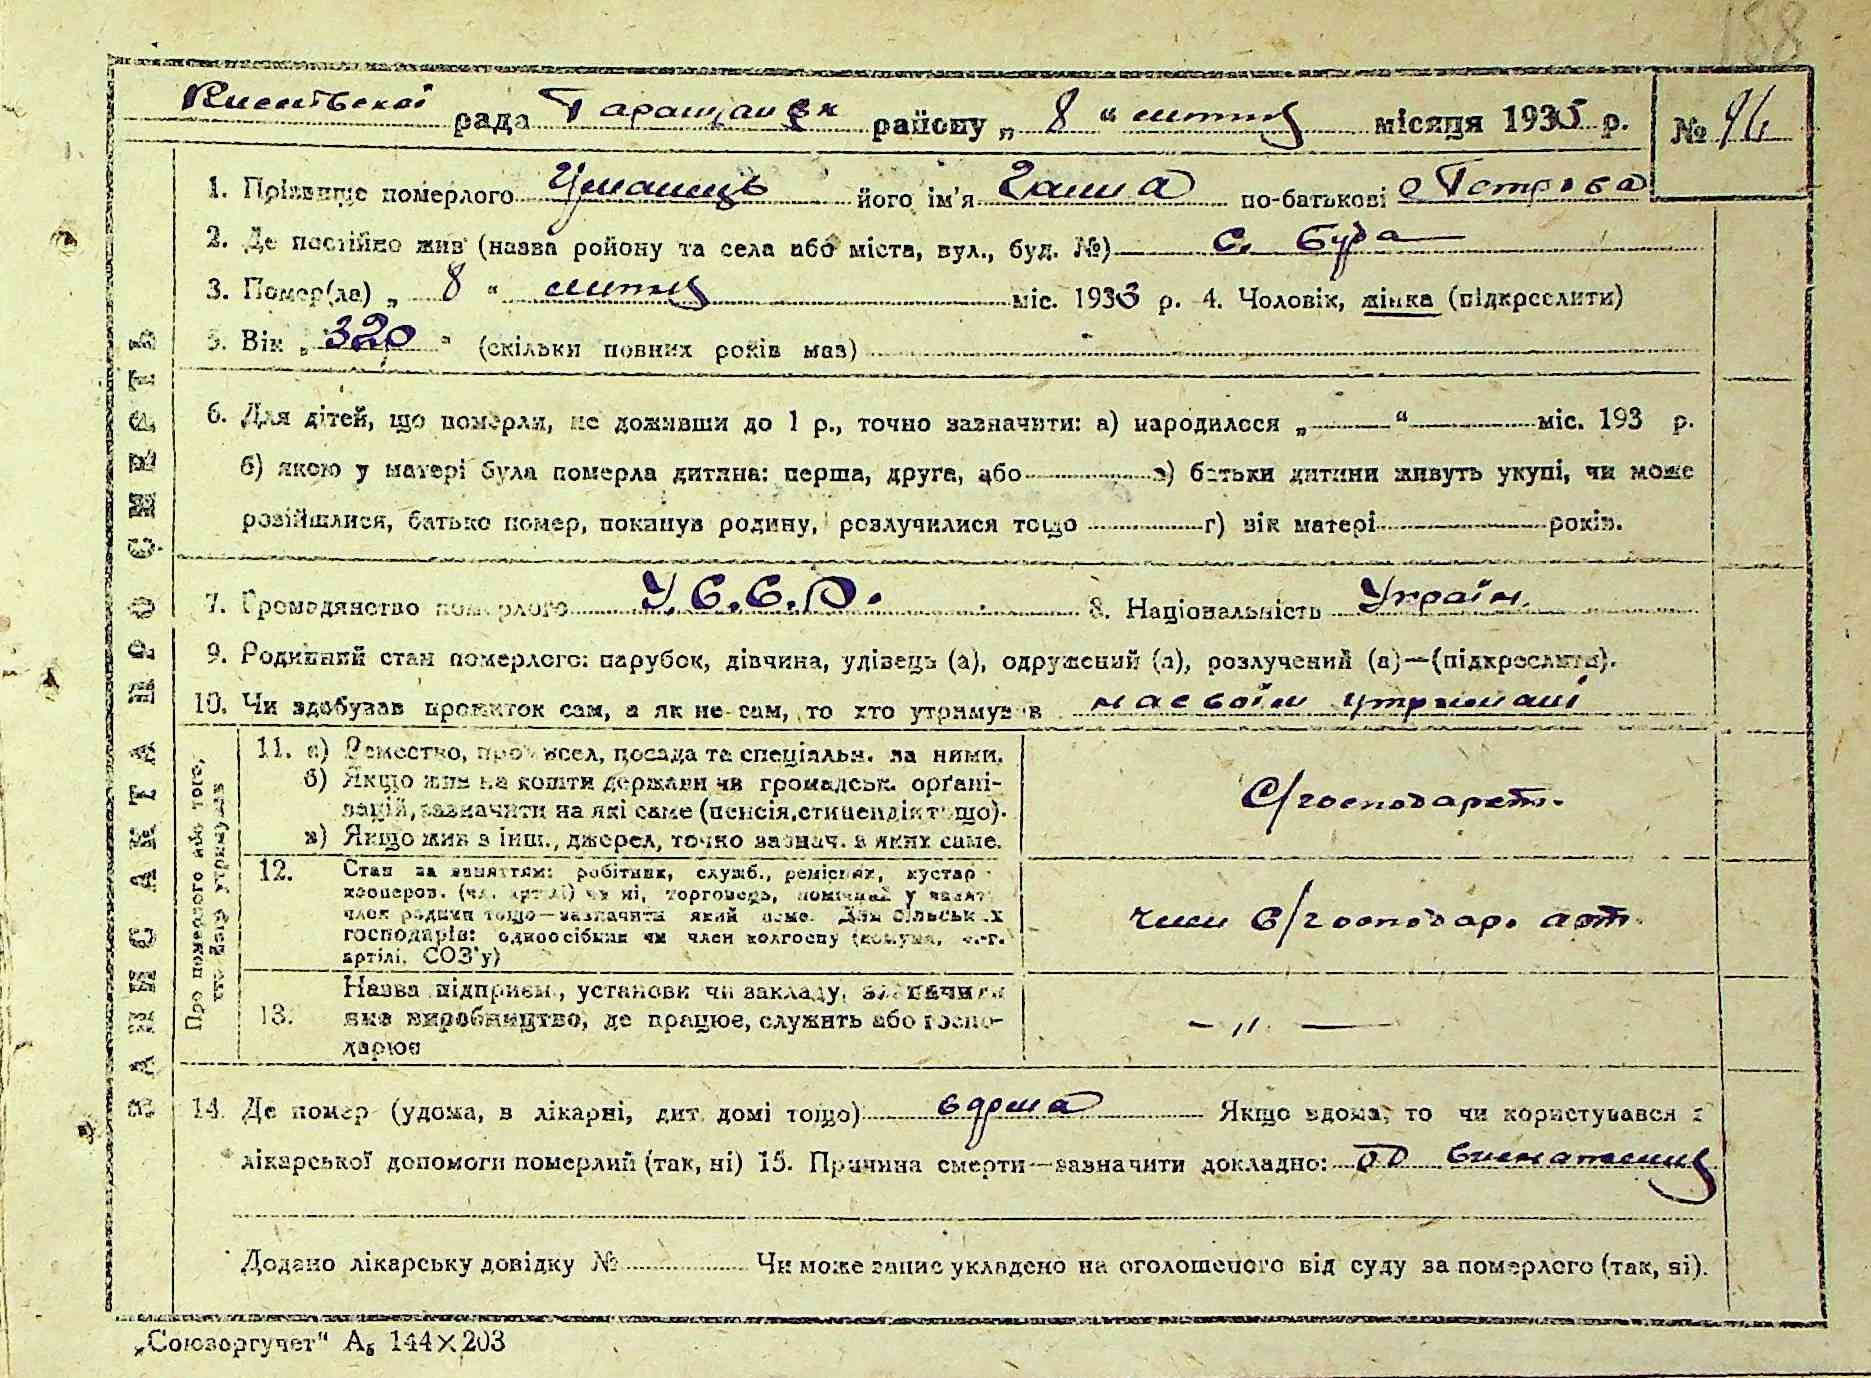 188
рада Таращанск району „ 8 “ лютня місяця 1933 р. №
1. Прізвище померлого Уманець його ім'я Ганна по-батькові Петрова
2. Де постійно жив (назва ройону та села або міста, вул., буд. №) с. Буда
3. Помер(ла) „ 8 “ лютня міс. 1933 р. 4. Чоловік, жінка (підкреслити)
5. Вік „ “ (скільки повних років мав)
6. Для дітей, що померли, не доживши до 1 р., точно зазначити: а) народилося „ “ міс. 193 р.
б) якою у матері була померла дитина: перша, друга, або в) батьки дитини живуть укупі, чи може
розійшлися, батько помер, покинув родину, розлучилися тощо г) вік матері років.
7. Громадянство померлого У.С.С.Р. 8. Національність Україн.
9. Родинний стан померлого: парубок, дівчина, удівець (а), одружений (а), розлучений (а)—(підкреслити).
10. Чи здобував прожиток сам, а як не сам, то хто утримував на своїм утримані
Про померлого або того,
хто його утримував
11. а) Ремество, промисел, посада та спеціальн. за ними.
б) Якщо жив на кошти держави чи громадськ. орґані-
зацій, зазначити на які саме (пенсія, стипендія тощо).
в) Якщо жив з інш., джерел, точно зазнач. з яких саме.
С/господарст.
12. Стан за заняттям: робітник, служб., ремісник, кустар
кооперов. (чл. артілі) чи ні, торговець, помічний у занят
член родини тощо—зазначити який саме. Для сільських
господарів: одноосібник чи член колгоспу (комуна, с.-г.
артілі, СОЗ'у)
член с/господар. арт.
13. Назва підприєм., установи чи закладу, зазначити
яке виробництво, де працює, служить або госпо-
дарює
— „ —
14. Де помер (удома, в лікарні, дит. домі тощо) вдома Якщо вдома, то чи користувався з
лікарської допомоги померлий (так, ні) 15. Причина смерти—зазначити докладно: од виснаження
Додано лікарську довідку № Чи може запис укладено на оголошеного від суду за померлого (так, ні).
ЗАПИС АКТА ПРО СМЕРТЬ
„Союзоргучет“ А₅ 144×203